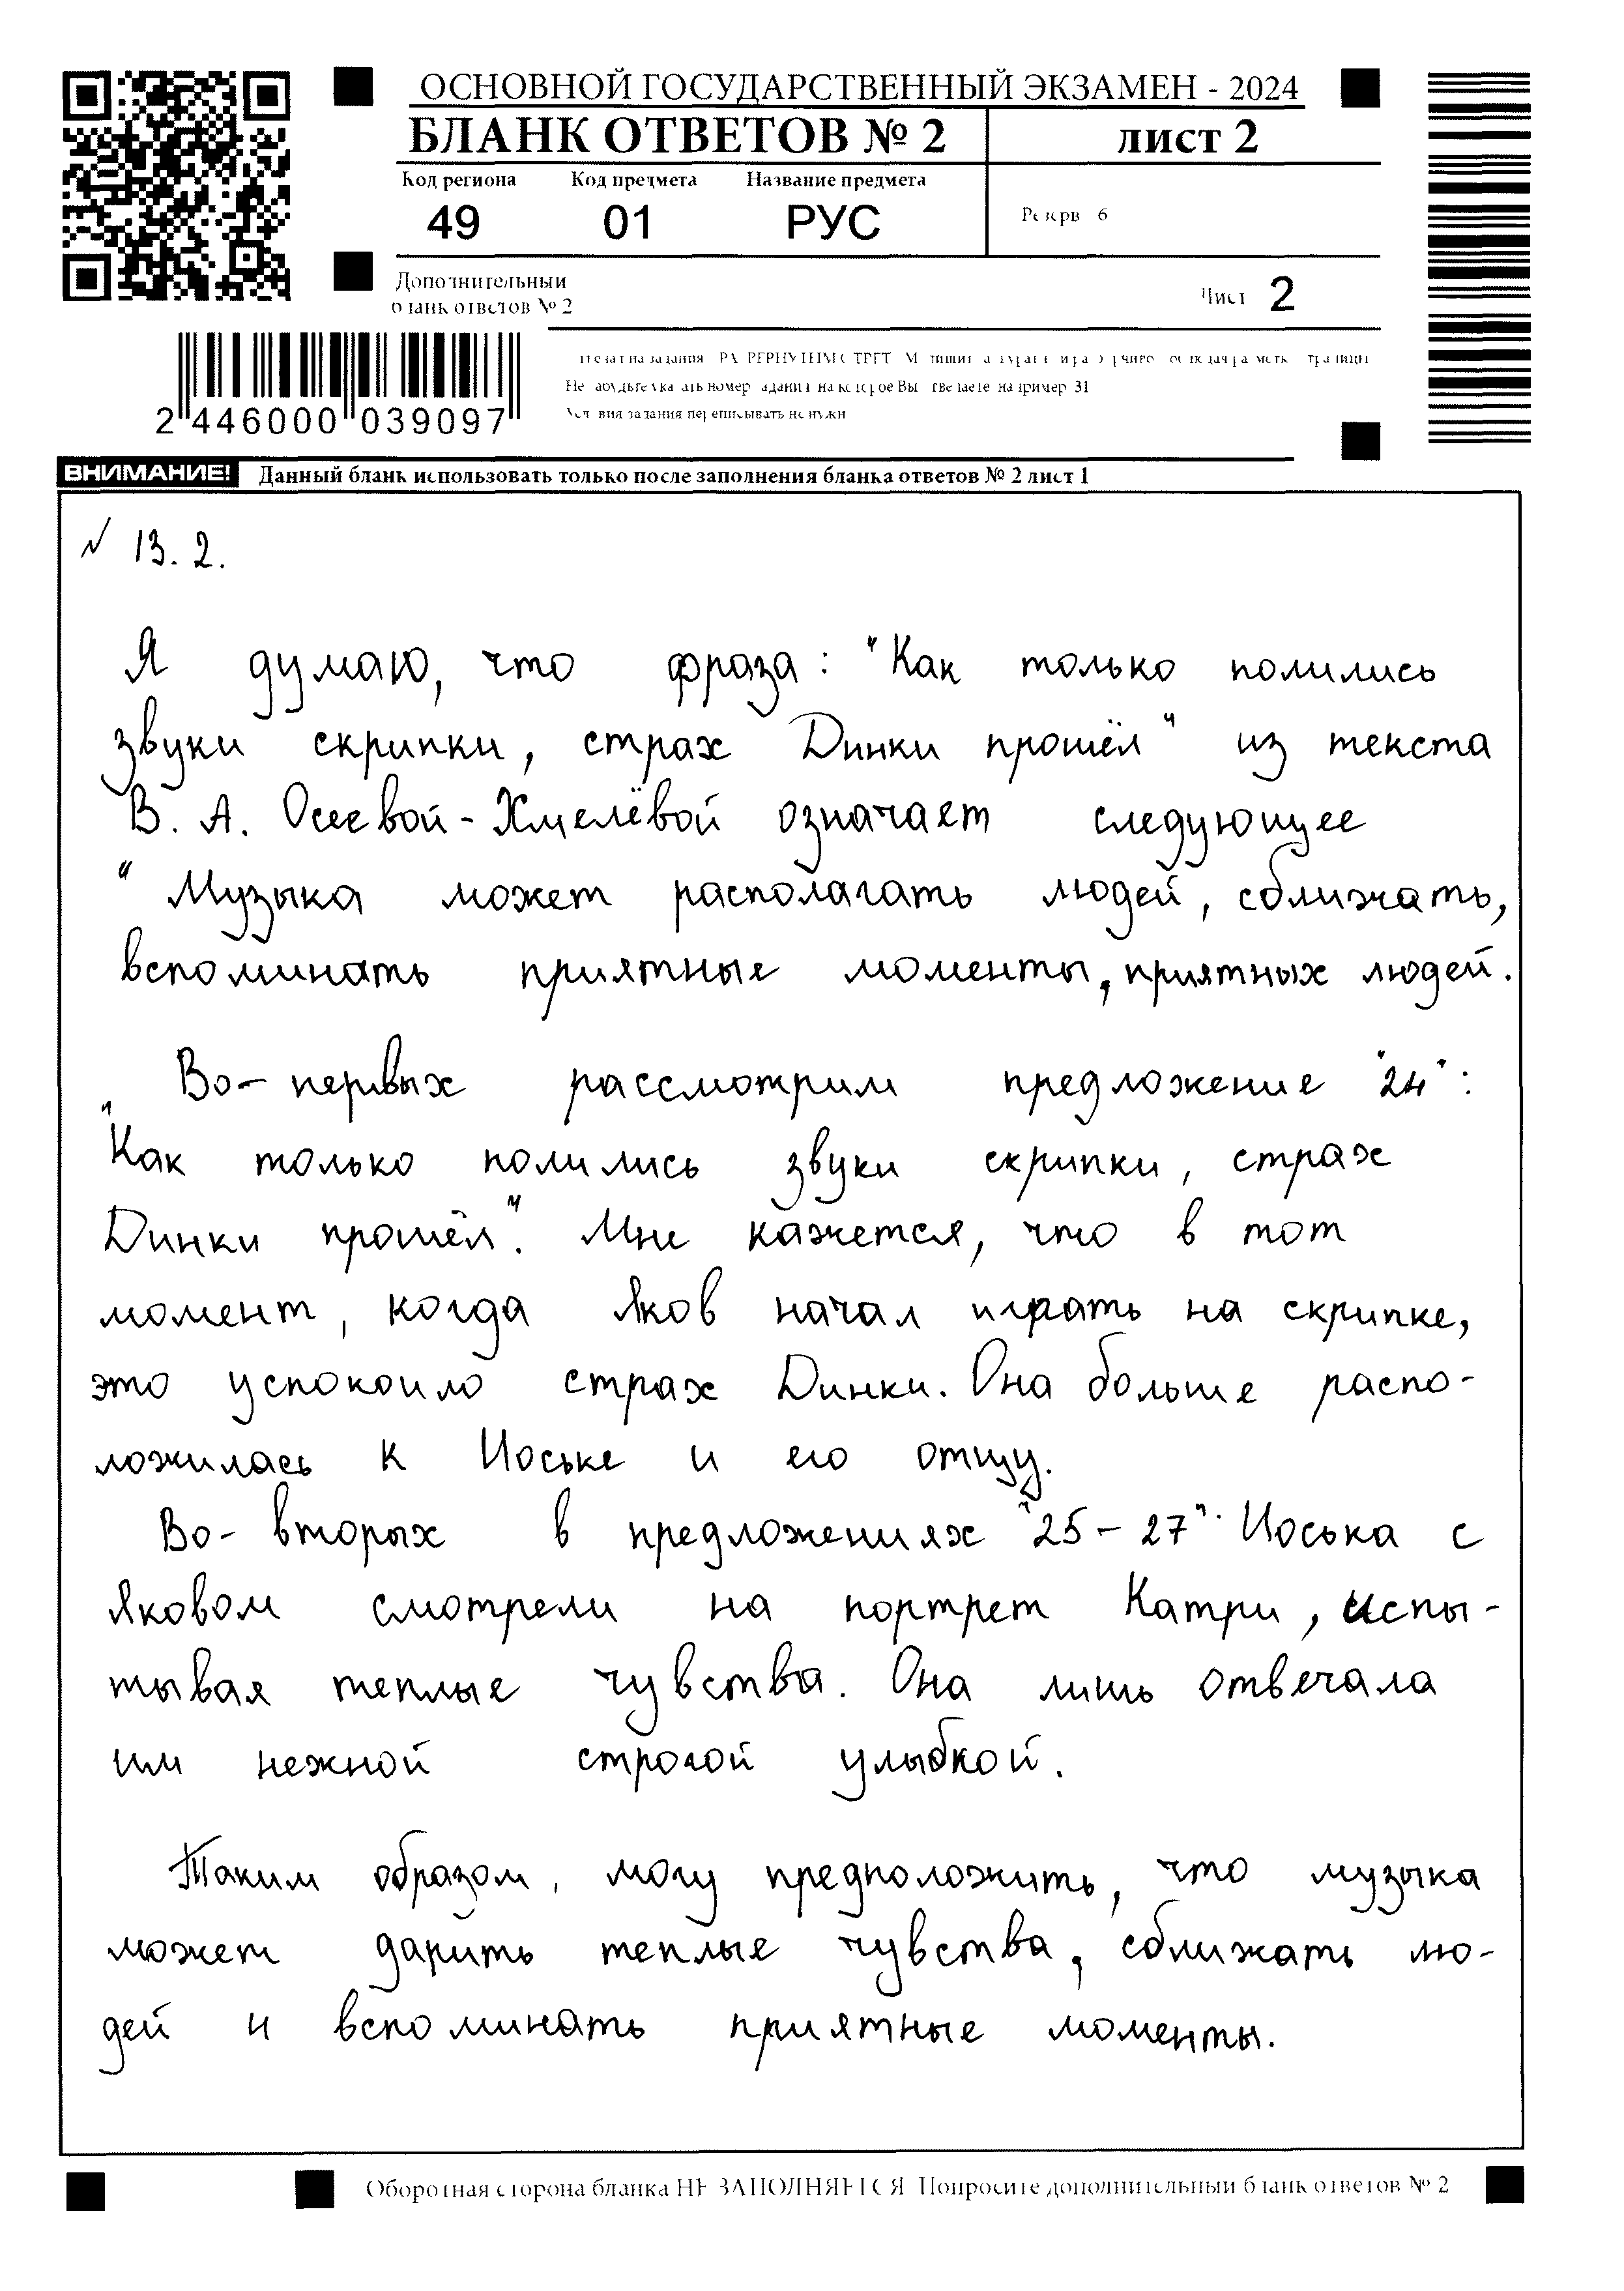 ОСНОВНОЙ ГОСУДАРСТВЕННЫЙ ЭКЗАМЕН - 2024
БЛАНК ОТВЕТОВ № 2
лист 2
Код региона
Код предмета
Название предмета
49
01
РУС
Резерв 6
Дополнительный
бланк ответов № 2
Лист 2
2 446000 039097
ВНИМАНИЕ! Данный бланк использовать только после заполнения бланка ответов № 2 лист 1
№ 13.2.
Я думаю, что фраза: "Как только полились
звуки скрипки, страх Динки прошёл" из текста
В. А. Осеевой-Хмелёвой означает следующее
" Музыка может располагать людей, сближать,
вспоминать приятные моменты, приятных людей.
Во-первых рассмотрим предложение "24":
"Как только полились звуки скрипки, страх
Динки прошёл". Мне кажется, что в тот
момент, когда Яков начал играть на скрипке,
это успокоило страх Динки. Она больше распо-
ложилась к Иоське и его отцу.
Во-вторых в предложениях "25-27". Иоська с
Яковом смотрели на портрет Катри, испы-
тывая теплые чувства. Она лишь отвечала
им нежной строгой улыбкой.
Таким образом, могу предположить, что музыка
может дарить теплые чувства, сближать лю-
дей и вспоминать приятные моменты.
Оборотная сторона бланка НЕ ЗАПОЛНЯЕТСЯ Попросите дополнительный бланк ответов № 2